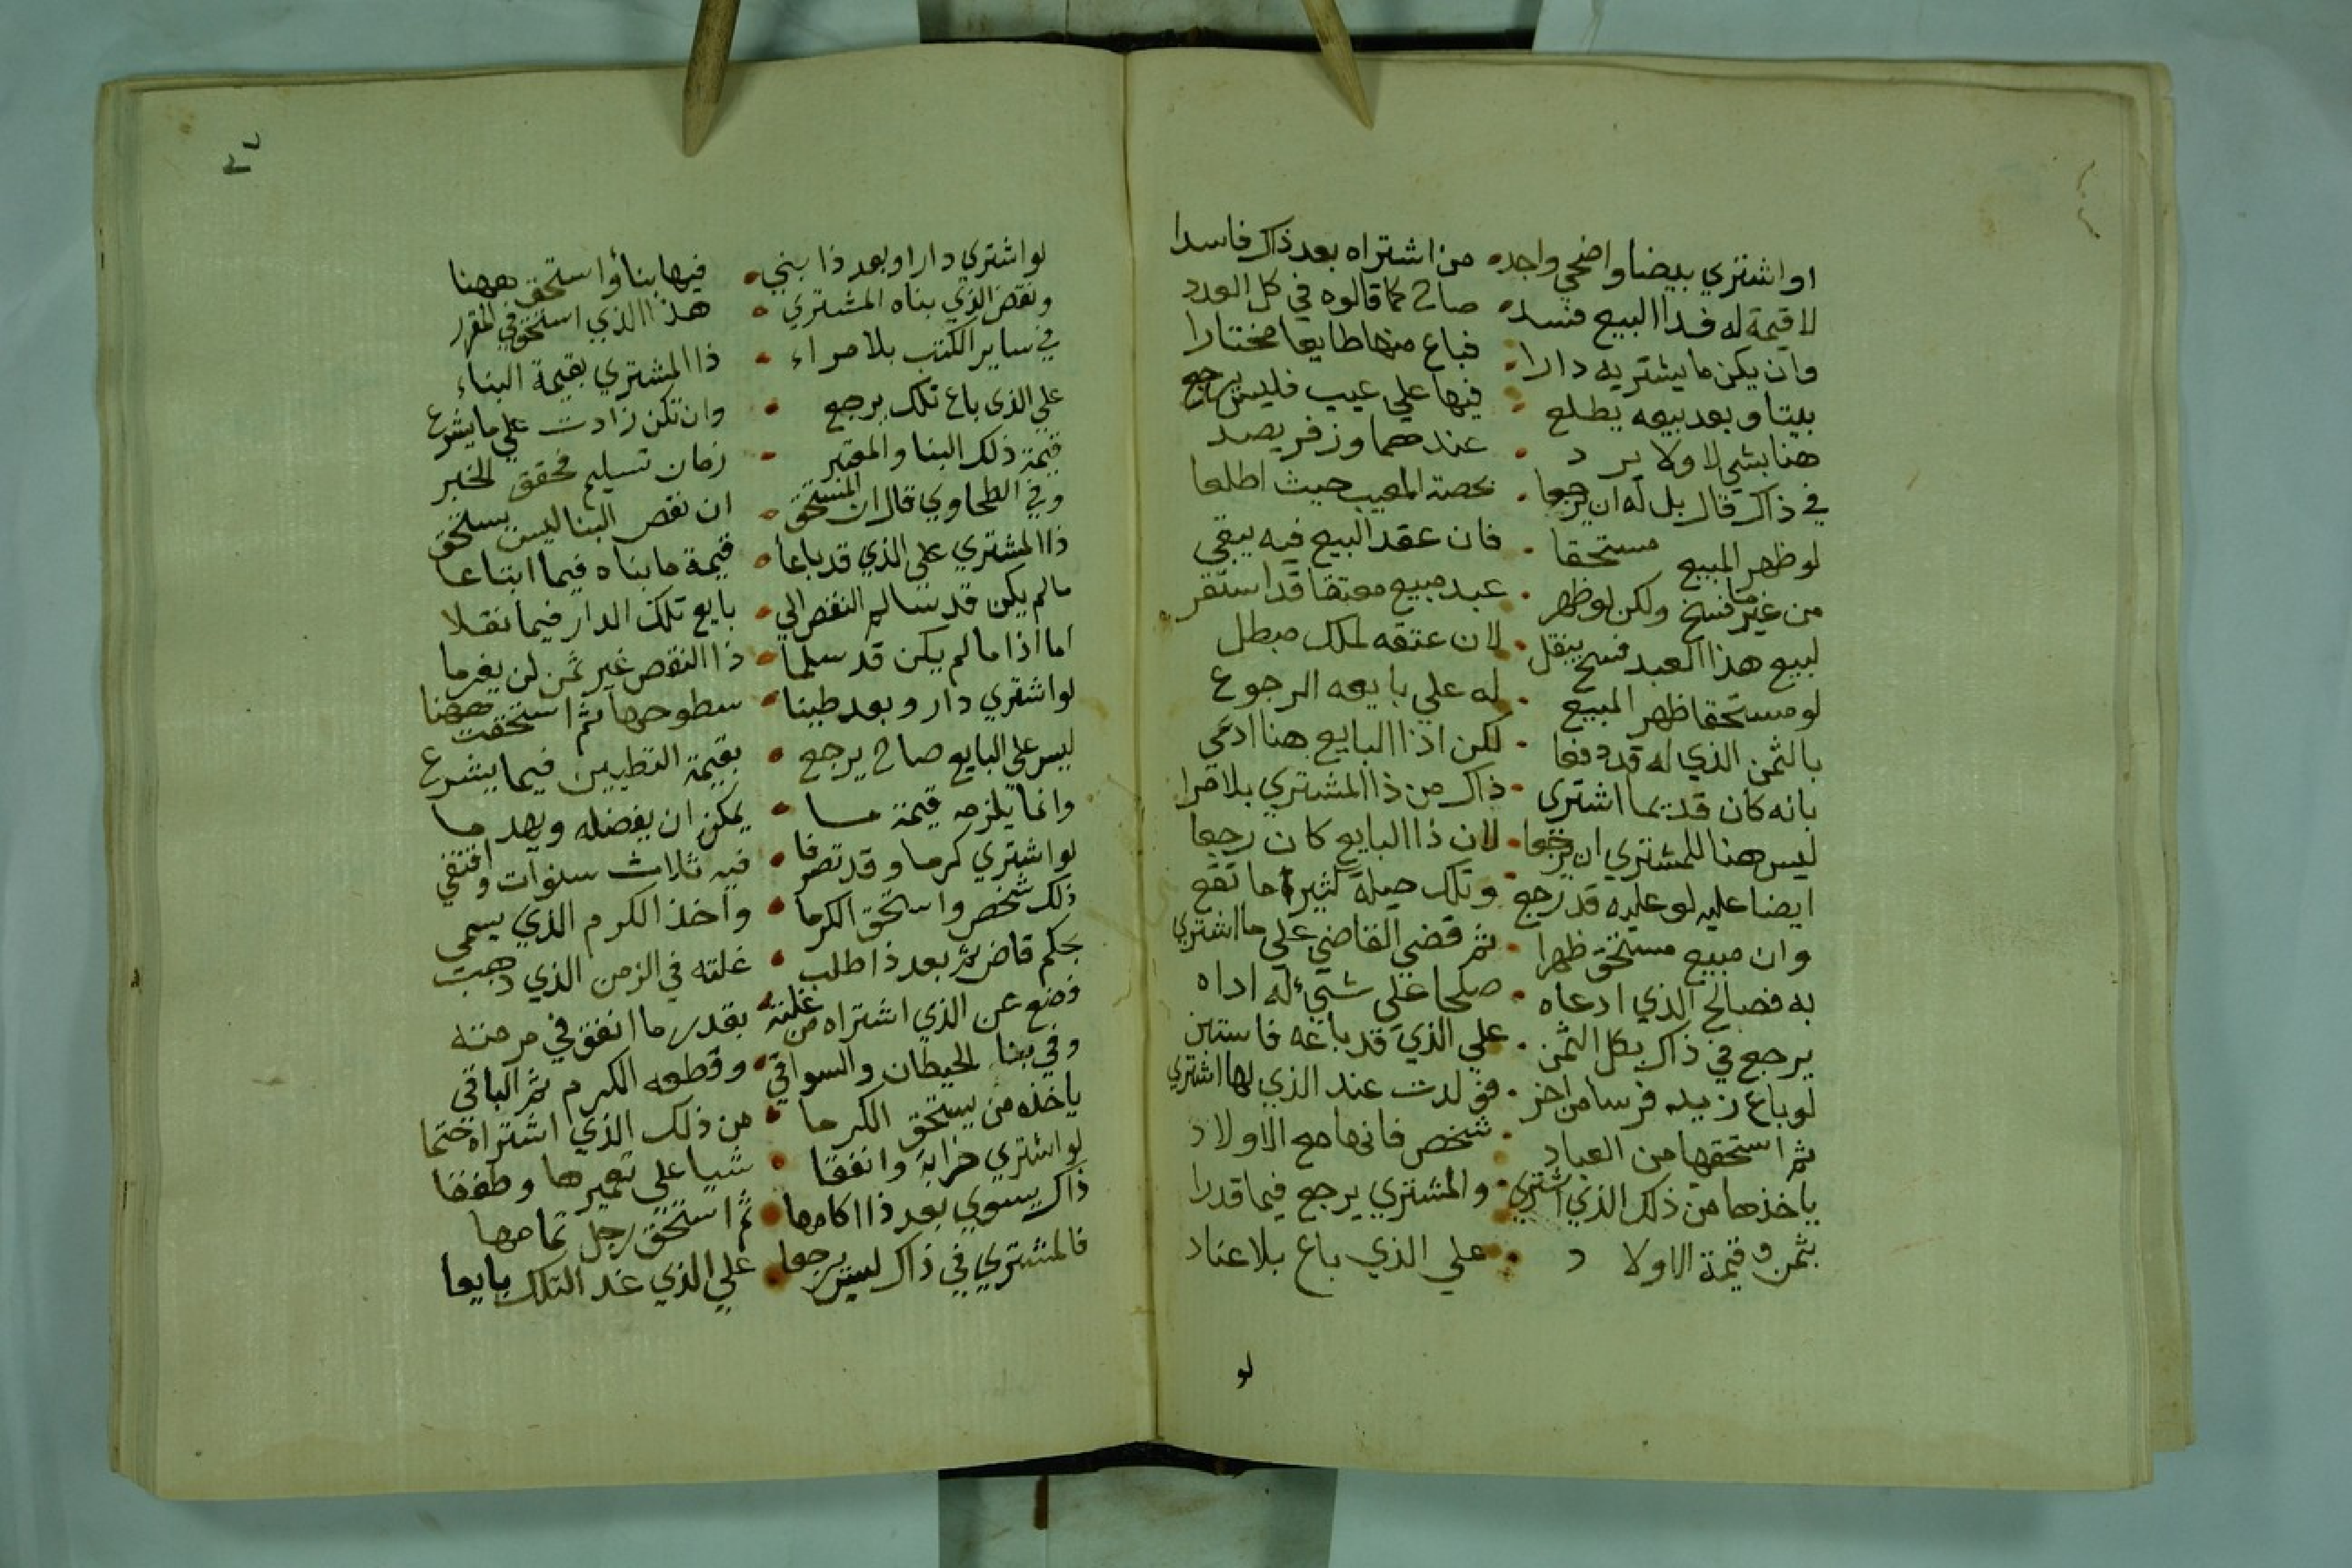 او اشتري بيضا واضحي واجده من اشتراه بعد ذاك فاسدا
لا قيمة له فذا البيع فسد صاح كما قالوه في كل العدد
وان يكن ما يشتريه دارا فباع منها طايعا مختارا
بيتا وبعد بيعه يطلع فيها علي عيب فليس يرجع
هنا بشي لا ولا يرد عندهما وزفر يصد
في ذاك قال بل له ان يرجعا بحصة المعيب حيث اطلعا
لو ظهر المبيع مستحقا فان عقد البيع فيه يبقي
من غير ما فسخ ولكن لو ظهر عبد مبيع معتقا قد استقر
لبيع هذا العبد فسخ ينقل لان عتقه لملك مبطل
لو مستحقا ظهر المبيع له علي بايعه الرجوع
بالثمن الذي له قد دفعا لكن اذا البايع هنا ادعي
بانه كان قديما اشتري ذاك من ذا المشتري بلا مرا
ليس هنا للمشتري ان يرجعا لان ذا البايع كان رجعا
ايضا عليه لو عليه قد رجع وتلك حيلة كثيرا ما تقع
وان مبيع مستحق ظهرا ثم قضي القاضي علي ما اشتري
به فصالح الذي ادعاه صلحا علي شيء له اداه
يرجع في ذاك بكل الثمن علي الذي قد باعه فاستبن
لو باع زيد فرسا من اخر فولدت عند الذي لها اشتري
ثم استحقها من العباد شخص فانها مع الاولاد
ياخذها من ذلك الذي اشتري والمشتري يرجع فيما قدرا
بثمن وقيمة الاولاد علي الذي باع بلا عناد
لو
٣٧
لو اشتري دارا وبعد ذا بني فيها بناؤا ستحق ههنا
ونقض الذي بناه المشتري هذا الذي استحق في المقرر
في ساير الكتب بلا مراء ذا المشتري بقيمة البناء
علي الذي باع تلك يرجع وان تكن زادت علي ما يشرع
قيمة ذلك البنا والمعتبر زمان تسليم فحقق الخبر
وفي الطحاوي قال ان المستحق ان نقض البنا ليس يستحق
ذا المشتري علي الذي قد باعا قيمة ما بناه فيما ابتاعا
ما لم يكن قد سالم النقض الي بايع تلك الدار فيما نقلا
اما اذا ما لم يكن قد سلما ذا النقض غير ثمن لن يغرما
لو اشتري دار وبعد طينا سطوحها ثم استحقت ههنا
ليس علي البايع صاح يرجع بقيمة التطيين فيما يشرع
وانما يلزمه قيمة ما يمكن ان يفضله ويهدما
لو اشتري كرما وقد تصرفا فيه ثلاث سنوات واقتفي
ذلك شخص واستحق الكرما واخذ الكرم الذي يسمي
بحكم قاض ثم بعد ذا طلب غلته في الزمن الذي ذهب
فضع عن الذي اشتراه من غلته بقدر ما انفق في مرمته
وفي بنا الحيطان والسواقي وقطعه الكرم ثم الباقي
ياخذه من يستحق الكرما من ذلك الذي اشتراه ختما
لو اشتري خرابة وانفقا شيا علي تعميرها وطفقا
ذاك يسوي بعد ذا اكامها ثم استحق رجل تمامها
فالمشتري في ذاك ليس يرجعا علي الذي غدا لتلك بايعا